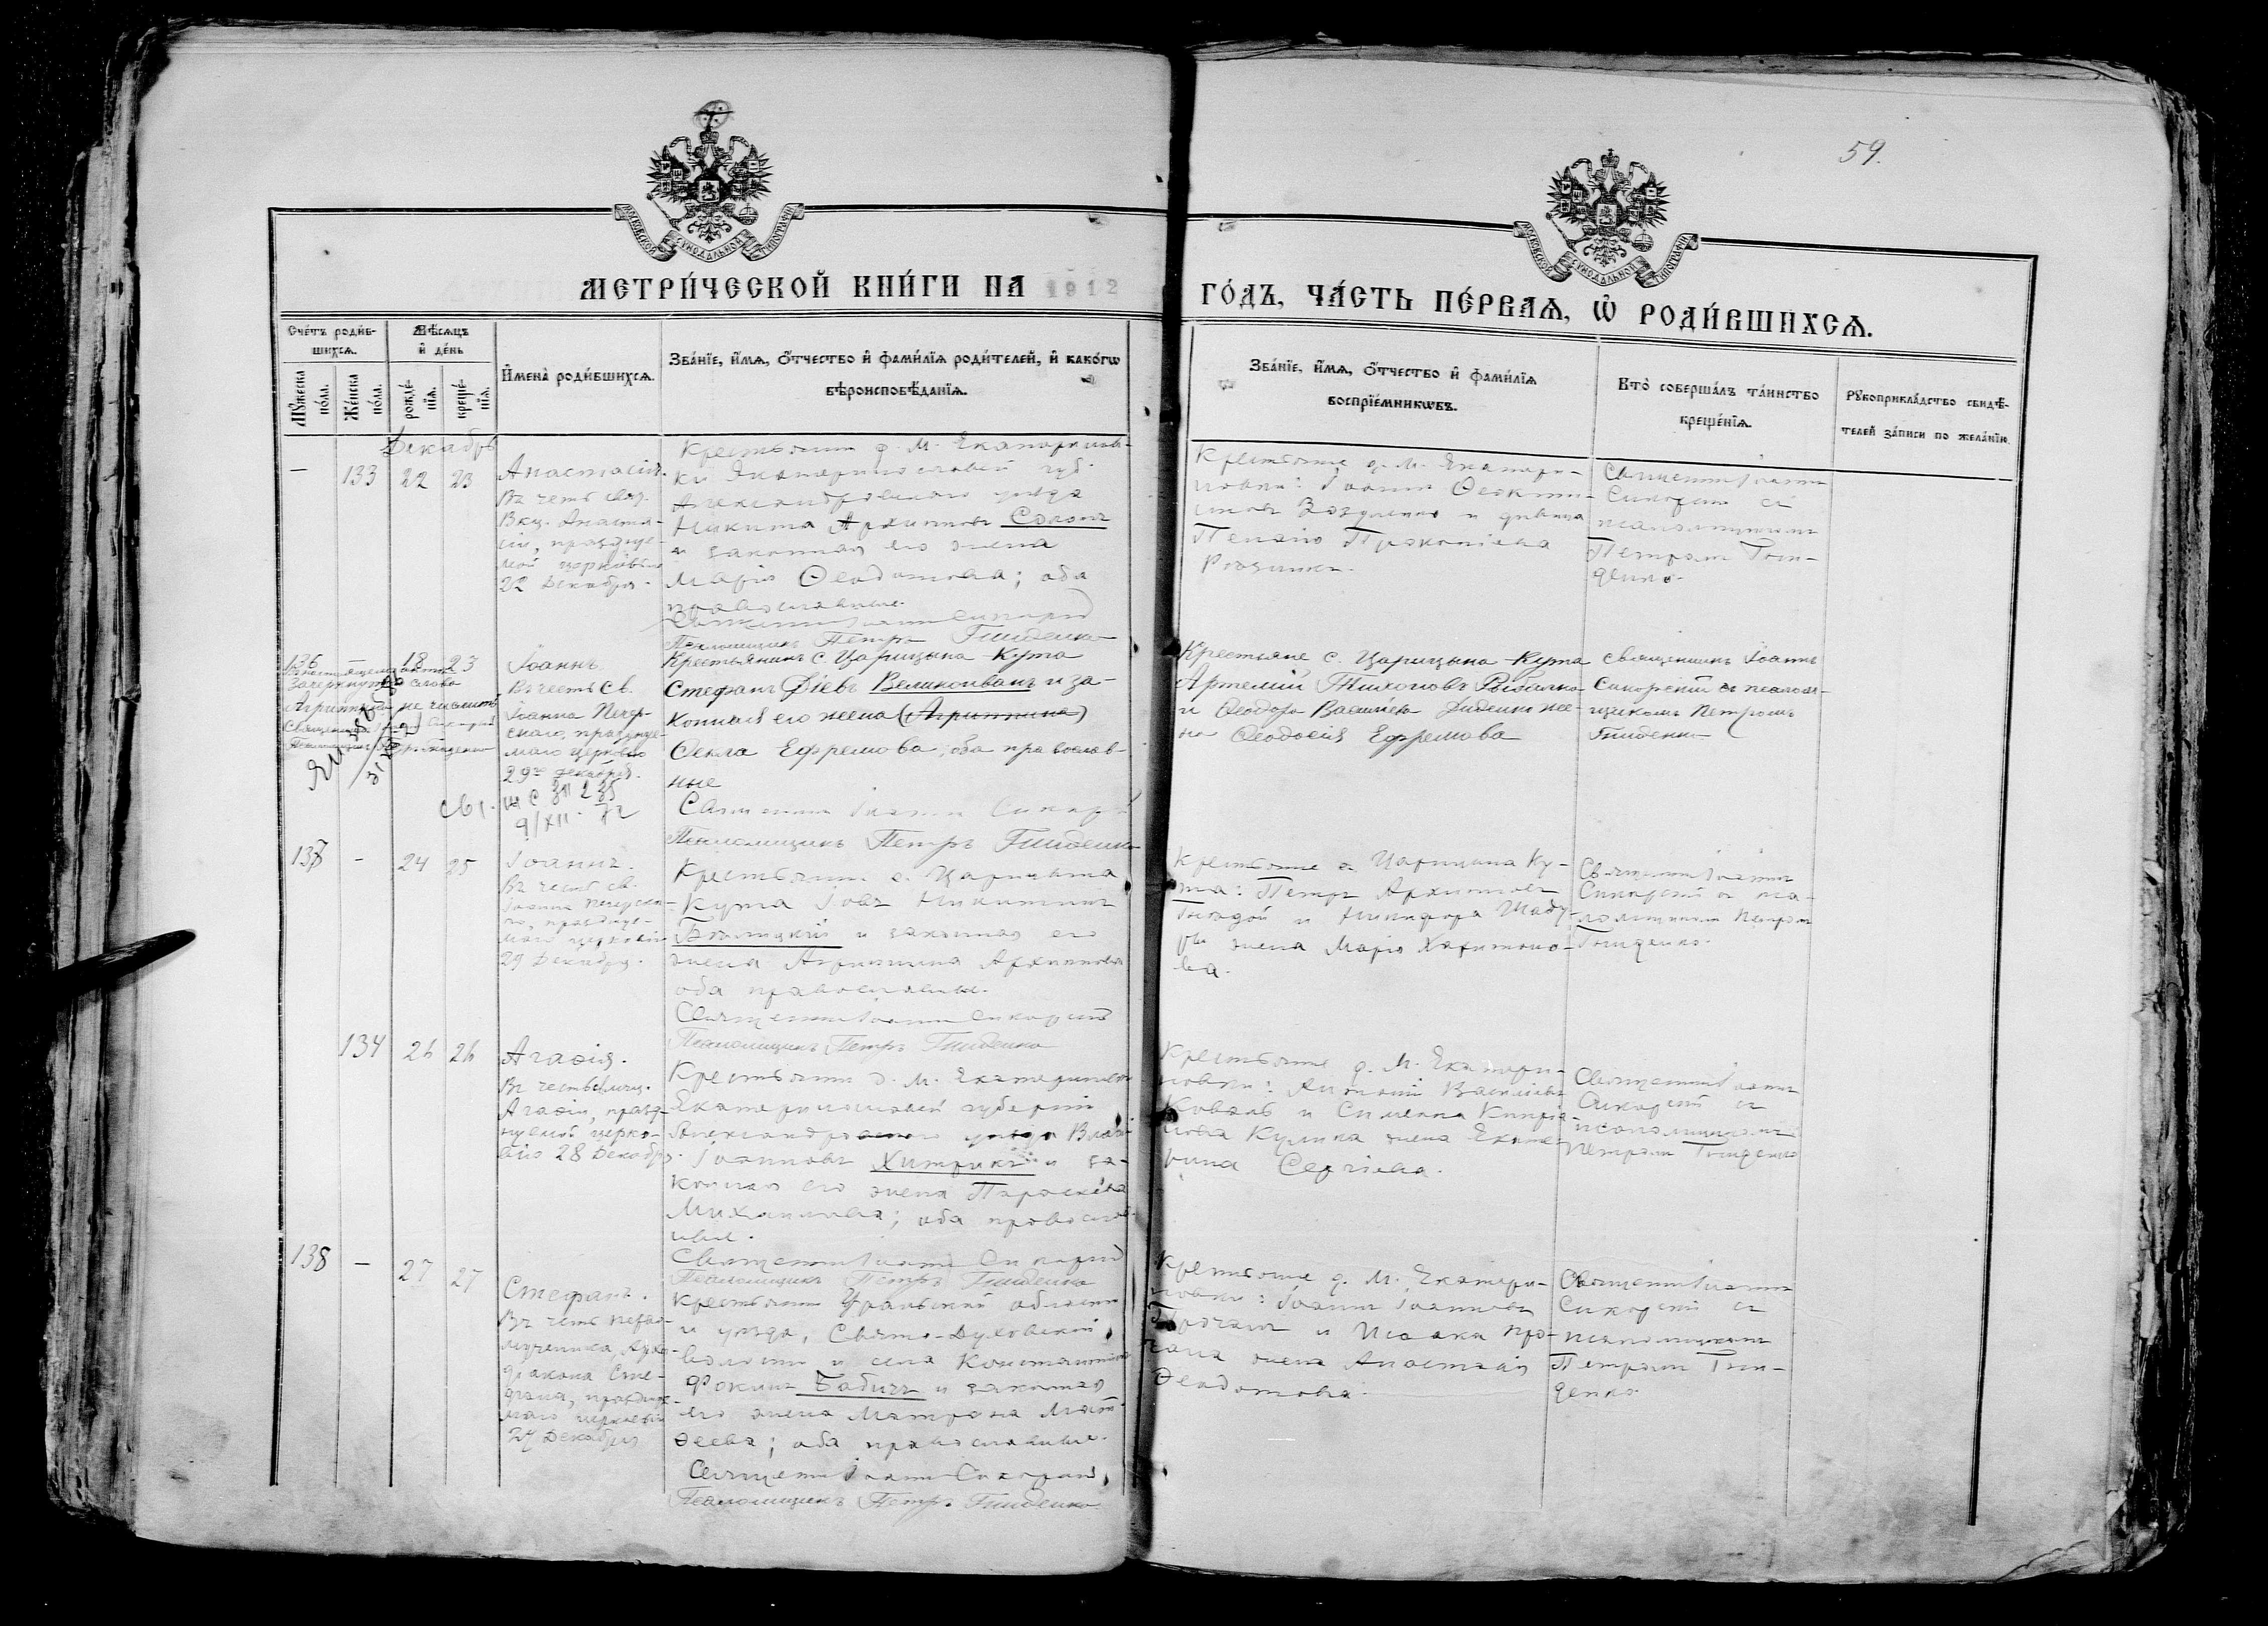 59.
МОСКОВСКОЙ СѴНОДАЛЬНОЙ ТИПОГРАФІИ
МОСКОВСКОЙ СѴНОДАЛЬНОЙ ТИПОГРАФІИ
МЕТРИ́ЧЕСКОЙ КНИ́ГИ НА 1912
ГО́ДЪ, ЧА́СТЬ ПЕ́РВАѦ, Ѡ҆ РОДИ́ВШИХСѦ.
Сче́тъ роди́в-
шихсѧ.
Мꙋ́жеска по́ла.
Же́нска по́ла.
Мѣ́сѧцъ
и҆ де́нь
рожде́-
нїѧ.
креще́-
нїѧ.
И҆мена̀ роди́вшихсѧ.
Зва́нїе, и҆́мѧ, ѻ҆́тчество и҆ фами́лїѧ роди́телей, и҆ како́гѡ
вѣроисповѣ́данїѧ.
Зва́нїе, и҆́мѧ, ѻ҆́тчество и҆ фами́лїѧ
воспрїе́мникѡвъ.
Кто̀ соверша́лъ та́инство
креще́нїѧ.
Рꙋкоприкла́дство свидѣ́-
телей за́писи по жела́нїю.
Декабрь
— 133 22 23
Анастасія.
Въ честь
Вмц. Анаста-
сіи, праздnуе-
мой церковью
22 Декабря.
Крестьянин д. М. Екатеринов-
ки Екатеринославской губ.
Александровскаго уезда
Никита Архипов Солом
и законная его жена
Марія Ѳеодотова; оба
православные.
Псаломщикъ Петръ Гниденко
Крестьяне д. М. Екатери-
новки: Іоанн Ѳеокти-
стов и девица
Прокопіева
Священник Іоанн
Сикорскій с
псаломщиком
Петром Гни-
денко.
136 — 18 23
Зачеркнутое слово
Агриппина не читать
Священник
Псаломщикъ Петръ Гниденко
Іоаннъ
Въ честь св.
Іоанна Печер-
скаго, празднуе-
маго церковью
29го декабря.
9/XII. 72
Крестьянинъ с. Царицына-Кута
Стефанъ Діевъ Великоиванъ и за-
конная его жена (Агриппина)
Ѳекла Ефремова; оба православ-
ные
Псаломщикъ Петръ Гниденко
Крестьяне с. Царицына-Кута
Артемій Тихоновъ Рыбалка
и Ѳеодора Василіева Диденко же-
на Ѳеодосія Ефремова
Священникъ Іоаннъ
Сикорскій съ псалом-
щикомъ Петромъ
Гниденко
137 — 24 25
Іоаннъ.
Въ честь св.
Іоанна Печерска-
го, празднуе-
маго церковью
29 Декабря.
Крестьянин с. Царицына
Кута Іовъ Никитин
и законная его
жена Агриппина Архиппова
оба православные.
Священник Іоанн Сикорскій
Псаломщикъ Петръ Гниденко
Крестьяне с. Царицына Ку-
та: Петръ Архиппов
и Никифора
жена Марія Харитоно-
ва.
Священник Іоанн
Сикорскій с пса-
ломщиком Петром
Гниденко.
134 26 26
Агаѳія.
Въ честь мц.
Агаѳіи, празд-
нуемой церко-
вію 28 Декабря
Крестьянин д. М. Екатериновки
Екатеринославской губерніи
Александровскаго уезда
Іоаннов Хитрикъ и за-
конная его жена Параскева
Михаилова; оба православ-
ные.
Священник Іоанн Сикорскій
Псаломщикъ Петръ Гниденко
Крестьяне д. М. Екатери-
новки: Антоній Василіев
Коваль и Симеона Кипріа-
нова жена Екате-
рина Сергіева.
Священник Іоанн
Сикорскій с
псаломщиком
Петром Гниденко
138 — 27 27
Стефанъ.
Въ честь перво-
мученика Архи-
діакона Сте-
фана, празднуе-
маго церковью
27 Декабря
Крестьянин Уральской области
и уезда, Свято-Духовской
волости и села
Фокин Бабич и законная
его жена Матрона Мат-
ѳеева; оба православные.
Священник Іоанн Сикорскій
Псаломщикъ Петръ Гниденко
Крестьяне д. М. Екатери-
новки: Іоанн Іоаннов
и Исаака
жена Анастасія
Ѳеодотова.
Священник Іоанн
Сикорскій с
псаломщиком
Петром Гни-
денко.